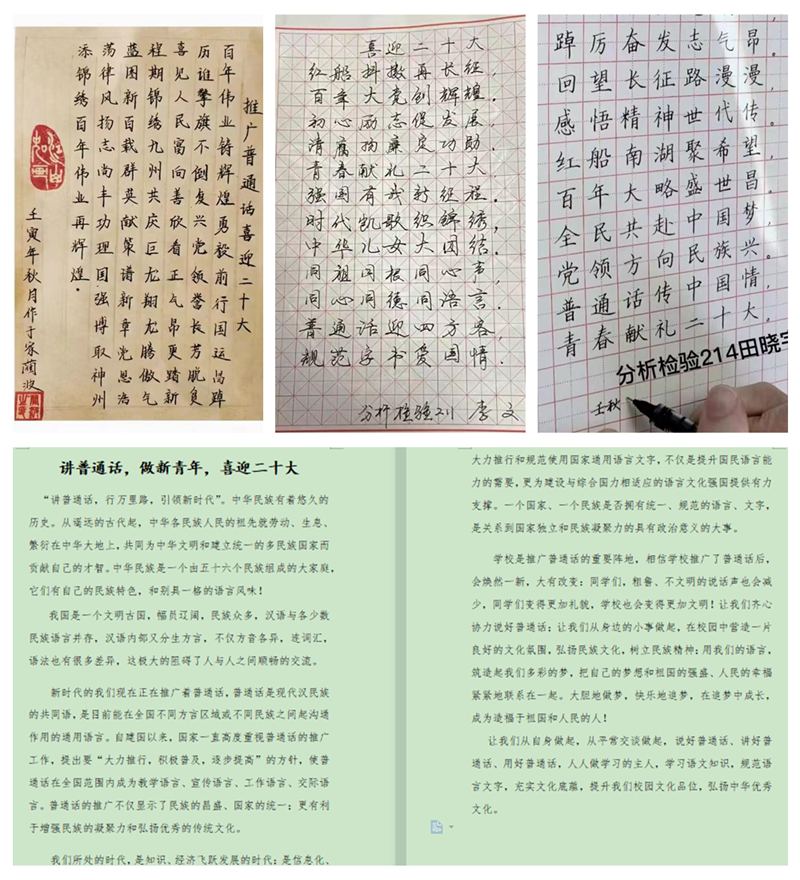 推广普通话喜迎二十大
百年伟业铸辉煌勇毅前行国运昌踔
历谁擎旗不倒复兴党领誉长芳脱负
喜见人民富向善欣看正气昂更踏新
程期锦绣九州共庆巨龙翔龙腾傲气
蓝图新百载群英献策谱新章党恩浩
荡律风扬志尚丰功理国强博取神州
添锦绣百年伟业再辉煌。
壬寅年秋月作于家蔺波
喜迎二十大
红船抖擞再长征,
百年大党创辉煌.
初心励志促发展,
清腐拘廉定功勋.
青春献礼二十大,
强国有我新征程.
时代凯歌织锦绣,
中华儿女大团结.
同祖同根同心事,
同心同德同语言.
普通话迎四方客,
规范字书爱国情.
分析检验211 李文
踔厉奋发志气昂。
回望长征路漫漫,
感悟精神世代传。
红船南湖聚希望,
百年大略盛世昌。
全民共赴中国梦,
党领方向民族兴。
普通话传中国情,
青春献礼二十大。
分析检验214田晓宇
壬秋
讲普通话，做新青年，喜迎二十大
“讲普通话，行万里路，引领新时代”。中华民族有着悠久的
历史。从遥远的古代起，中华各民族人民的祖先就劳动、生息、
繁衍在中华大地上，共同为中华文明和建立统一的多民族国家而
贡献自己的才智。中华民族是一个由五十六个民族组成的大家庭，
它们有自己的民族特色，和别具一格的语言风味！
我国是一个文明古国，幅员辽阔，民族众多，汉语与各少数
民族语言并存，汉语内部又分生方言，不仅方音各异，连词汇，
语法也有很多差异，这极大的阻碍了人与人之间顺畅的交流。
新时代的我们现在正在推广着普通话，普通话是现代汉民族
的共同语，是目前能在全国不同方言区域或不同民族之间起沟通
作用的通用语言。自建国以来，国家一直高度重视普通话的推广
工作，提出要“大力推行，积极普及，逐步提高”的方针，使普
通话在全国范围内成为教学语言、宣传语言、工作语言、交际语
言。普通话的推广不仅显示了民族的昌盛、国家的统一；更有利
于增强民族的凝聚力和弘扬优秀的传统文化。
我们所处的时代，是知识、经济飞跃发展的时代；是信息化、
大力推行和规范使用国家通用语言文字，不仅是提升国民语言能
力的需要，更为建设与综合国力相适应的语言文化强国提供有力
支撑。一个国家、一个民族是否拥有统一、规范的语言、文字，
是关系到国家独立和民族凝聚力的具有政治意义的大事。
学校是推广普通话的重要阵地，相信学校推广了普通话后，
会焕然一新，大有改变：同学们，粗鲁、不文明的说话声也会减
少，同学们变得更加礼貌，学校也会变得更加文明！让我们齐心
协力说好普通话；让我们从身边的小事做起，在校园中营造一片
良好的文化氛围，弘扬民族文化，树立民族精神；用我们的语言，
筑造起我们多彩的梦，把自己的梦想和祖国的强盛、人民的幸福
紧紧地联系在一起。大胆地做梦，快乐地追梦，在追梦中成长，
成为造福于祖国和人民的人！
让我们从自身做起，从平常交谈做起，说好普通话、讲好普
通话、用好普通话，人人做学习的主人，学习语文知识，规范语
言文字，充实文化底蕴，提升我们校园文化品位，弘扬中华优秀
文化。